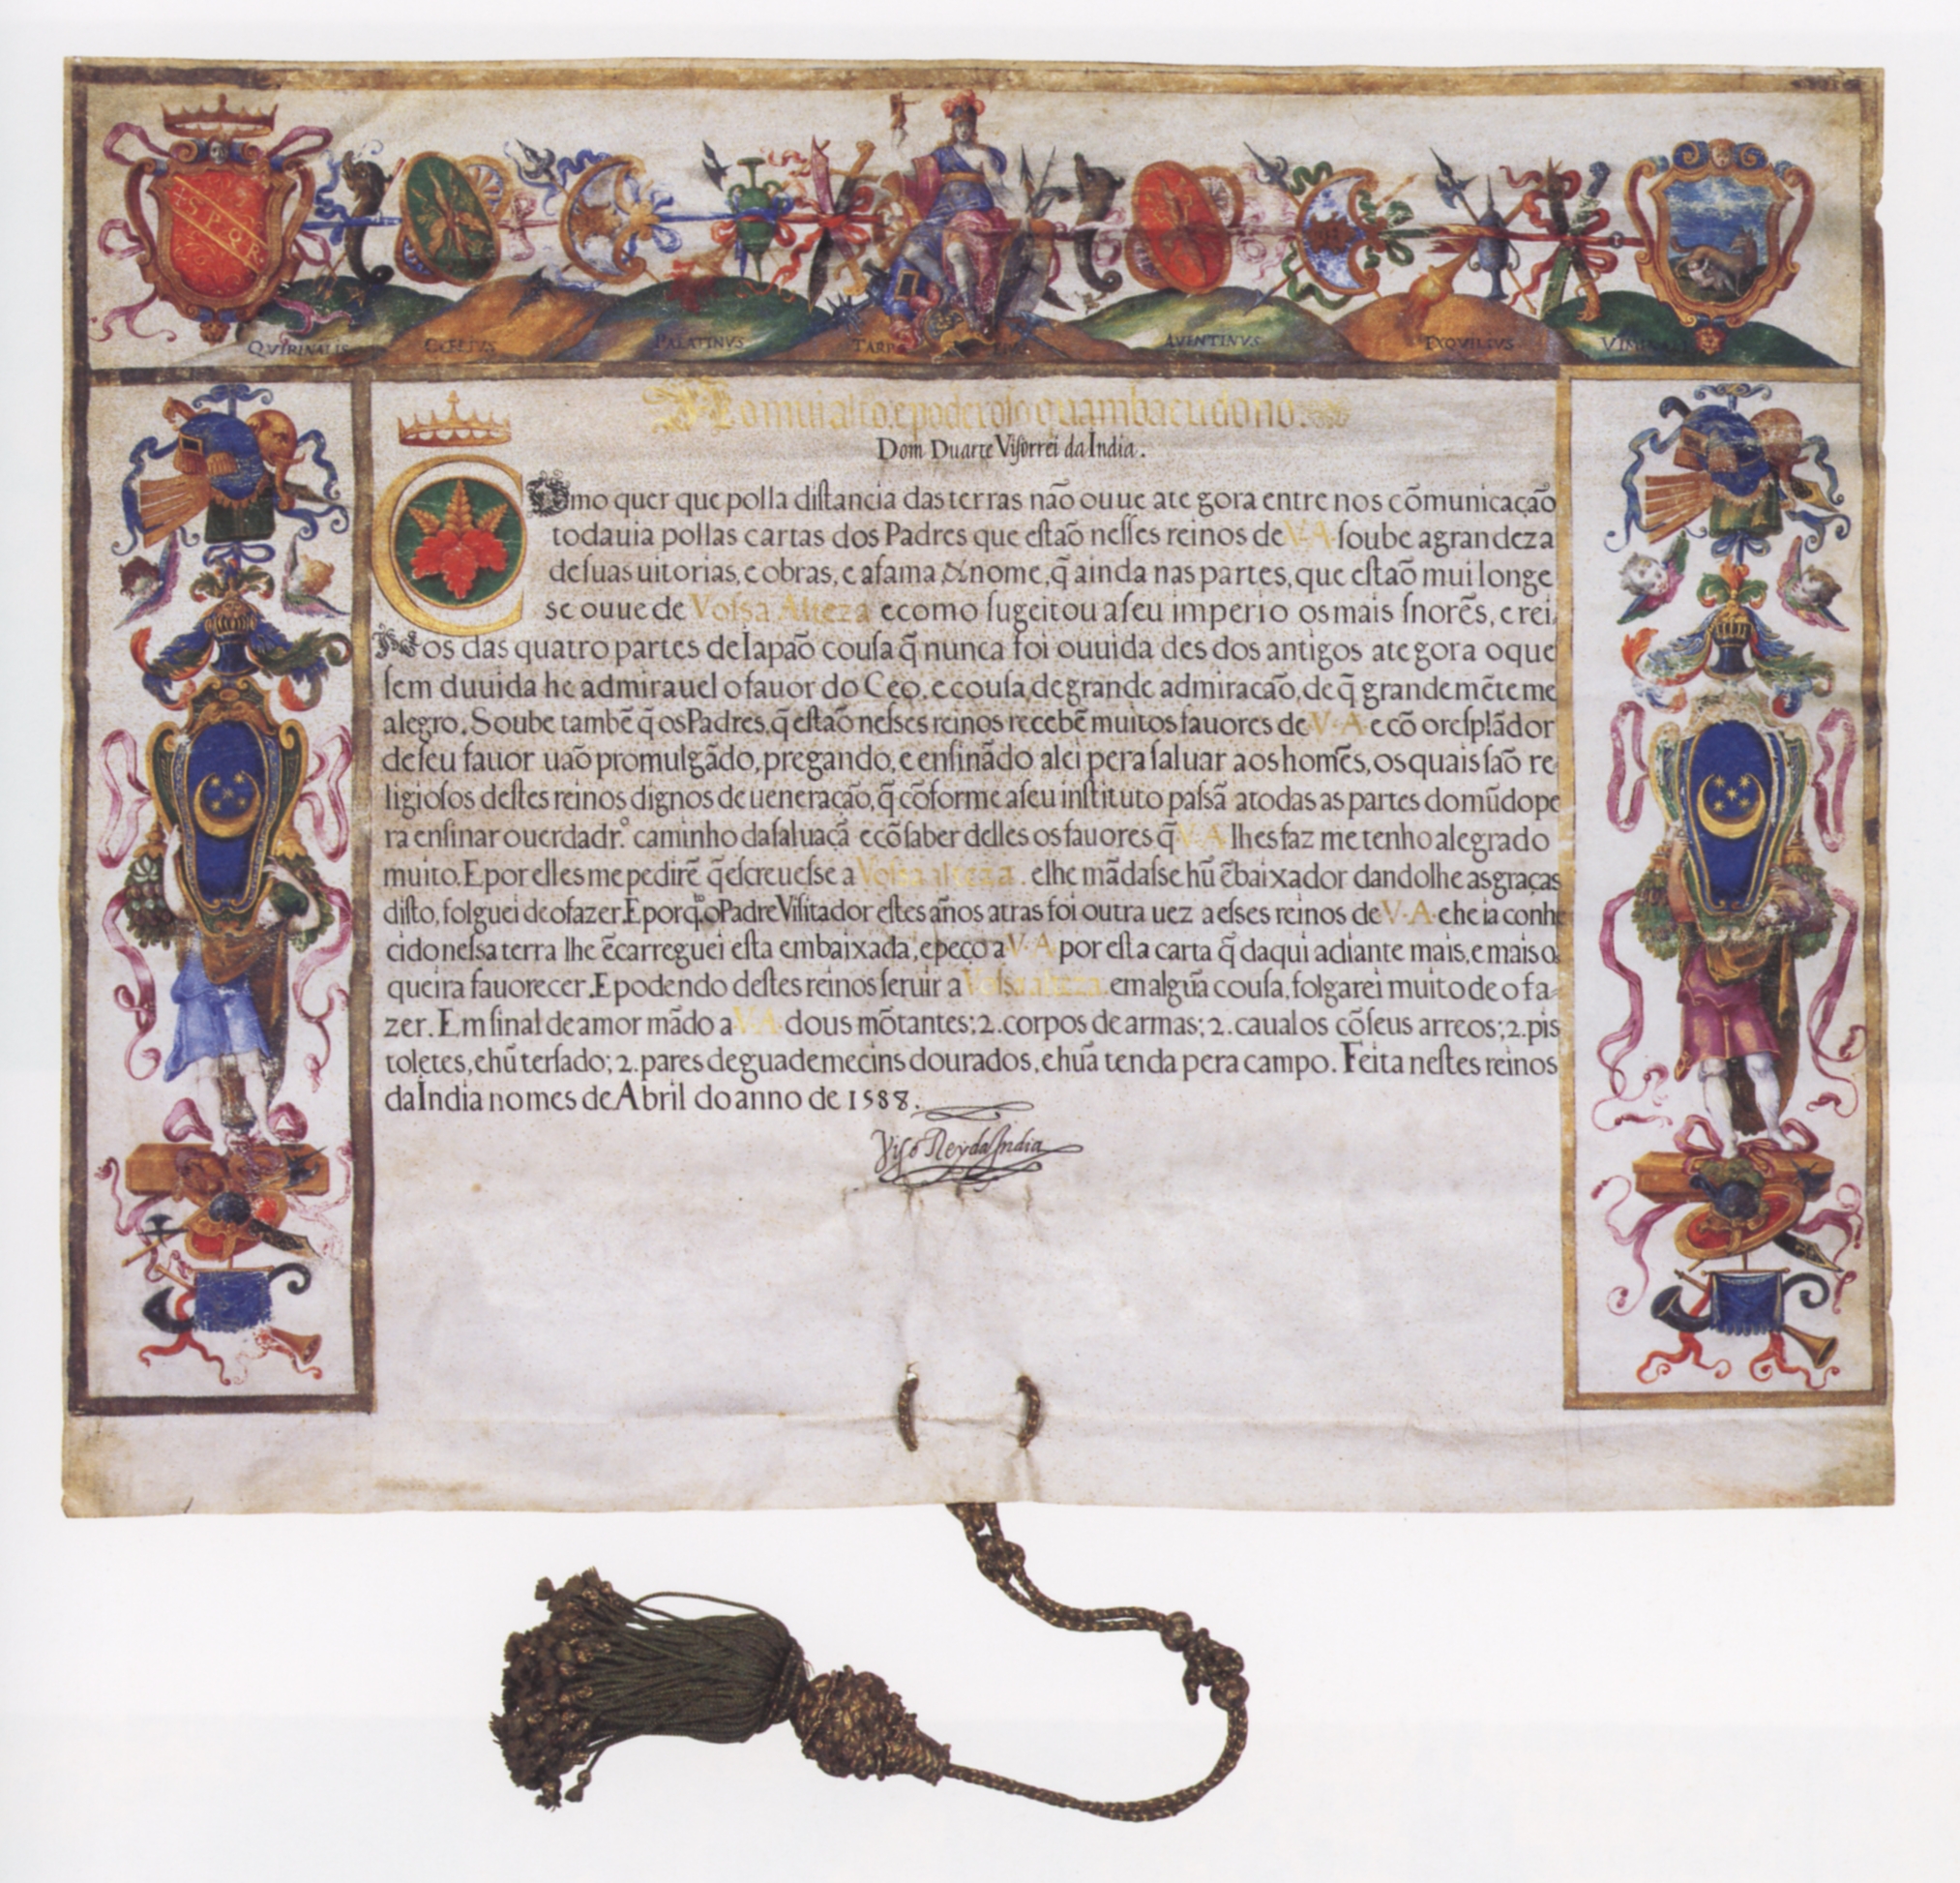 S P Q R
QVIRINALIS
CELIVS
PALATINVS
TARP
AVENTINVS
EXQVILIVS
Ao mui alto, e poderoso quambacudono.
Dom Duarte Visorrei da India.
Como quer que polla distancia das terras não ouue ate gora entre nos cõmunicação
todauia pollas cartas dos Padres que estaõ nesses reinos de V. A. soube a grandeza
de suas uitorias, e obras, e a fama, & nome, q̃ ainda nas partes, que estaõ mui longe
se ouue de Vossa Alteza e como sugeitou a seu imperio os mais snorẽs, e rei,
nos das quatro partes de Iapaõ cousa q̃ nunca foi ouuida des dos antigos ate gora o que
sem duuida he admirauel o fauor do Ceo, e cousa de grande admiracaõ, de q̃ grandemẽte me
alegro. Soube tambẽ q̃ os Padres, q̃ estaõ nesses reinos recebẽ muitos fauores de V. A. e cõ o resplãdor
de seu fauor uaõ promulgãdo, pregando, e ensinãdo a lei pera saluar aos homẽs, os quais saõ re
ligiosos destes reinos dignos de ueneração, q̃ cõforme a seu instituto passã a todas as partes do mũdo pe
ra ensinar o uerdadrº. caminho da saluaçã e cõ saber delles os fauores q̃ V. A. lhes faz me tenho alegrado
muito. E por elles me pedirẽ q̃ escreuesse a Vossa alteza. e lhe mãdasse hũ ẽbaixador dandolhe as graças
disto, folguei de o fazer. E porq̃ o Padre Visitador estes años atras foi outra uez a esses reinos de V. A. e he ia conhe
cido nessa terra lhe ẽcarreguei esta embaixada, e peço a V. A. por esta carta q̃ daqui adiante mais, e mais o
queira fauorecer. E podendo destes reinos seruir a Vossa alteza. em algũa cousa, folgarei muito de o fa-
zer. Em sinal de amor mãdo a V. A. dous mõtantes; 2. corpos de armas; 2. caualos cõ seus arreos; 2. pis
toletes, e hũ tersado; 2. pares de guademecins dourados, e huã tenda pera campo. Feita nestes reinos
da India no mes de Abril do anno de 1588.
Viso Rey da India